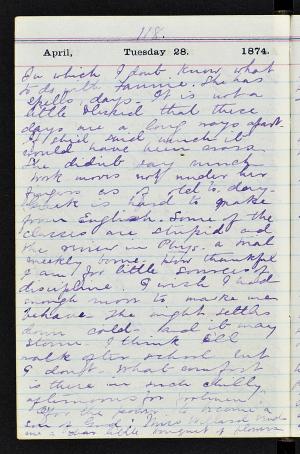 118.
April, Tuesday 28. 1874.
in which I don't know what
to do with Fannie. She has
spells, days. It is not a
little blessed that these
days are a long ways apart.
If she'd said much it
would have been cross.
She didn't say much
Work moves not under her
fingers as of old to-day.
Greek is hard to make
from English. Some of the
classes are stupid and
the review in Phys. a real
weekly bore. How thankful
I am for little sources of
discipline. I wish I had
enough more to make me
behave. The night settles
down cold and it may
storm. I think
walk after school but
I don't. What comfort
is there in such chilly
afternoons for
for the power to become a
son of God! Mrs
me a dear little bouquet of flowers